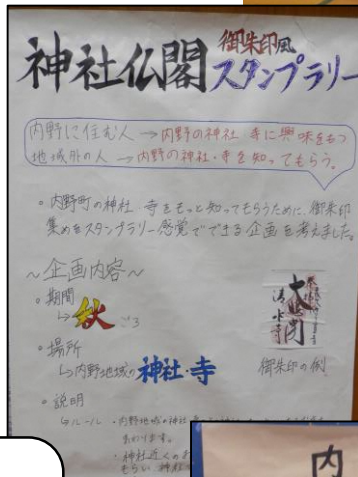 神社仏閣 御朱印風
スタンプラリー
内野に住む人→内野の神社 寺に興味をもつ
地域外の人→内野の神社・寺を知ってもらう。
・内野町の神社 寺をもっと知ってもらうために、御朱印
集めをスタンプラリー感覚でできる企画を考えました。
～企画内容～
・期間
↳秋
・場所
↳内野地域の神社・寺
清水寺
御朱印の例
・説明
↳ルール ・内野地域の神社
まわります。
・神社近くのお
もらい 神社
内